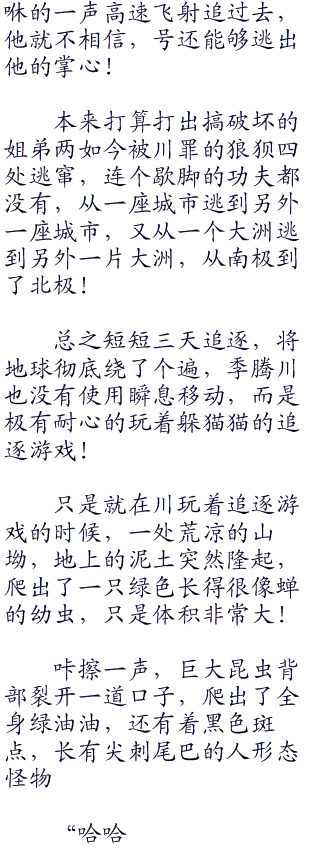 咻的一声高速飞射追过去，
他就不相信，号还能够逃出
他的掌心！
本来打算打出搞破坏的
姐弟两如今被川罪的狼狈四
处逃窜，连个歇脚的功夫都
没有，从一座城市逃到另外
一座城市，又从一个大洲逃
到另外一片大洲，从南极到
了北极！
总之短短三天追逐，将
地球彻底绕了个遍，季腾川
也没有使用瞬息移动，而是
极有耐心的玩着躲猫猫的追
逐游戏！
只是就在川玩着追逐游
戏的时候，一处荒凉的山
坳，地上的泥土突然隆起，
爬出了一只绿色长得很像蝉
的幼虫，只是体积非常大！
咔擦一声，巨大昆虫背
部裂开一道口子，爬出了全
身绿油油，还有着黑色斑
点，长有尖刺尾巴的人形态
怪物
“哈哈